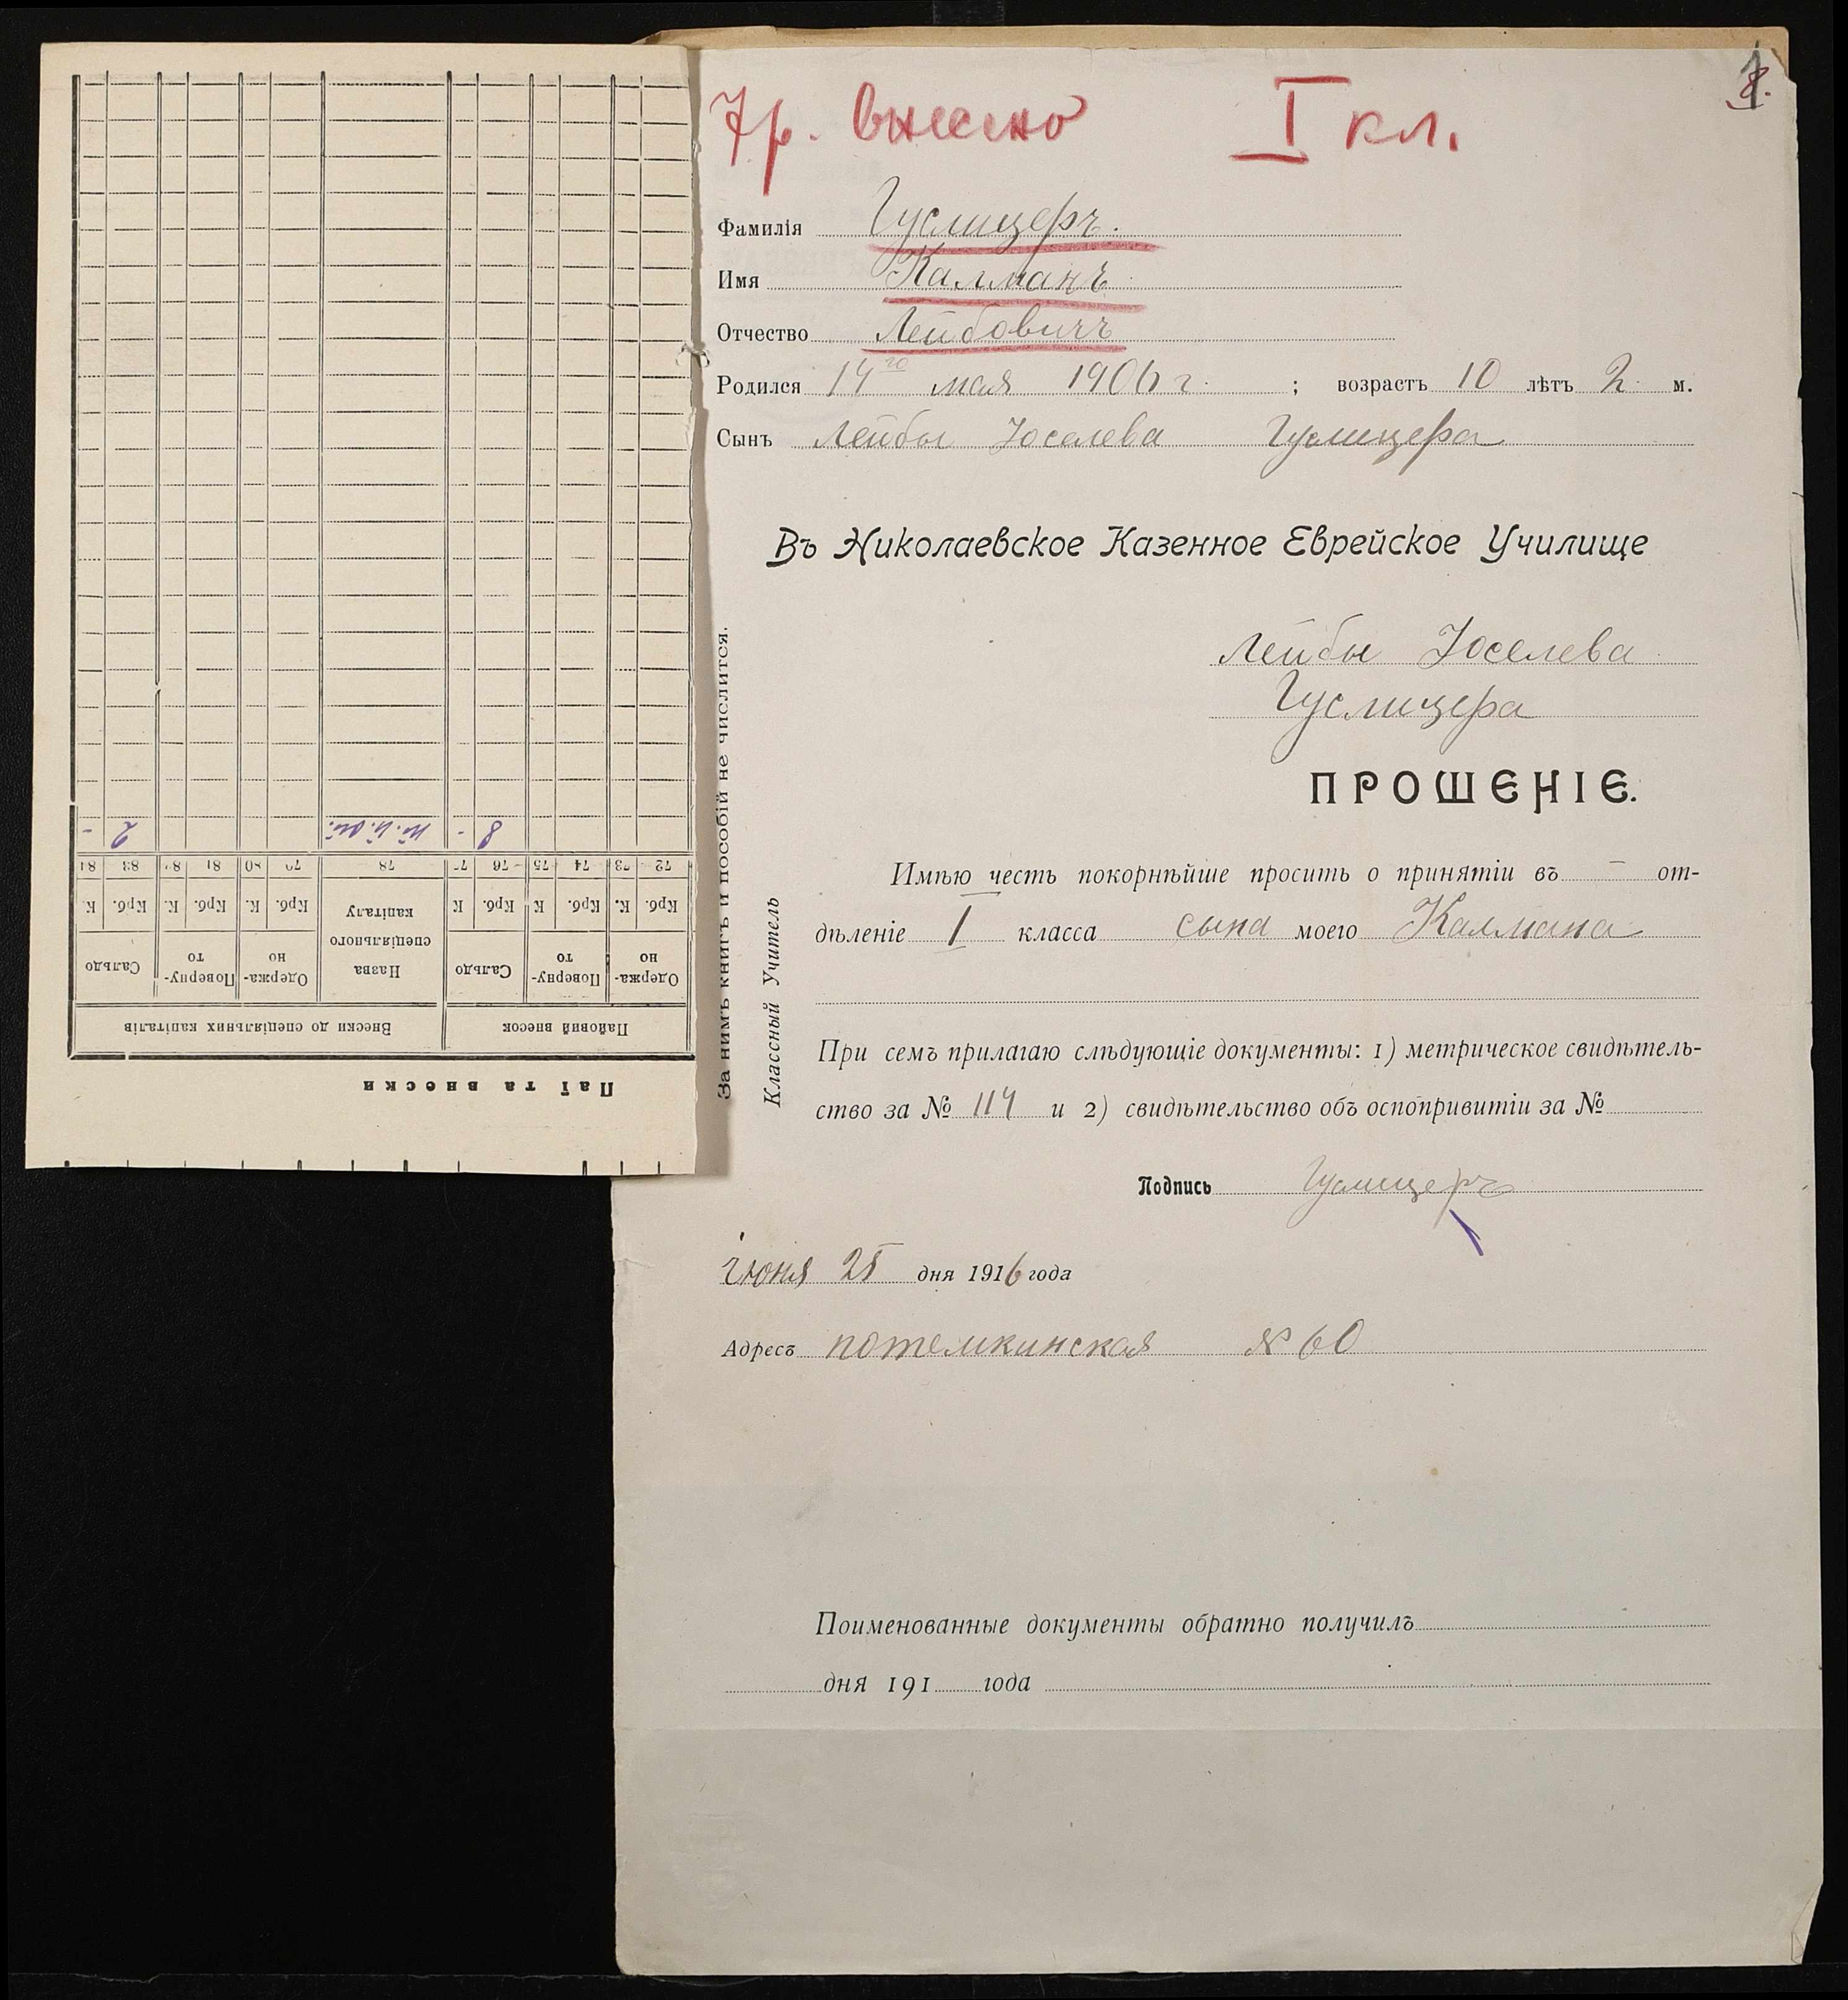 7р. внесено I кл.
8.
Фамилія Гуслицеръ.
Имя Калманъ
Отчество Лейбовичъ
Родился 14го мая 1906 г. ; возрастъ 10 лѣтъ 2 м.
Сынъ Лейбы Іоселева Гуслицера
Въ Николаевское Казенное Еврейское Училище
Лейбы Іоселева
Гуслицера
ПРОШЕНІЕ.
Имѣю честь покорнѣйше просить о принятіи въ — от-
дѣленіе I класса сына моего Калмана
При семъ прилагаю слѣдующіе документы: 1) метрическое свидѣтель-
ство за № 114 и 2) свидѣтельство объ оспопривитіи за №
Подпись Гуслицеръ
Іюня 25 дня 1916 года
Адресъ потемкинская № 60
Поименованные документы обратно получилъ
дня 191 года
За нимъ книгъ и пособій не числится.
Классный Учитель
Паї та внески
Пайовий внесок Внески до спеціяльних капіталів
Одержа- Поверну- Сальдо Назва Одержа- Поверну- Сальдо
но то спеціяльного но то
капіталу
Крб. К. Крб. К Крб. К Крб. К. Крб. К. Крб. К.
72 73 74 75 76 77 78 79 80 81 82 83 84
8 - 2 -